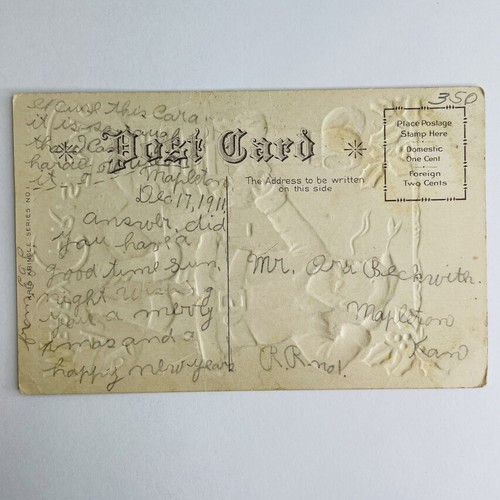 excuse this Card
it is so rough
Post Card
Mapleton
Dec. 17, 1911
answer, did
you have a
good time Sun.
night Wishing
you a merry
xmas and a
happy new years
KRIS KRINGLE SERIES NO. 1
The Address to be written
on this side
350
Place Postage
Stamp Here
Domestic
One Cent
Foreign
Two Cents
Mr. Ora Beckwith.
Mapleton
R.R. no 1.